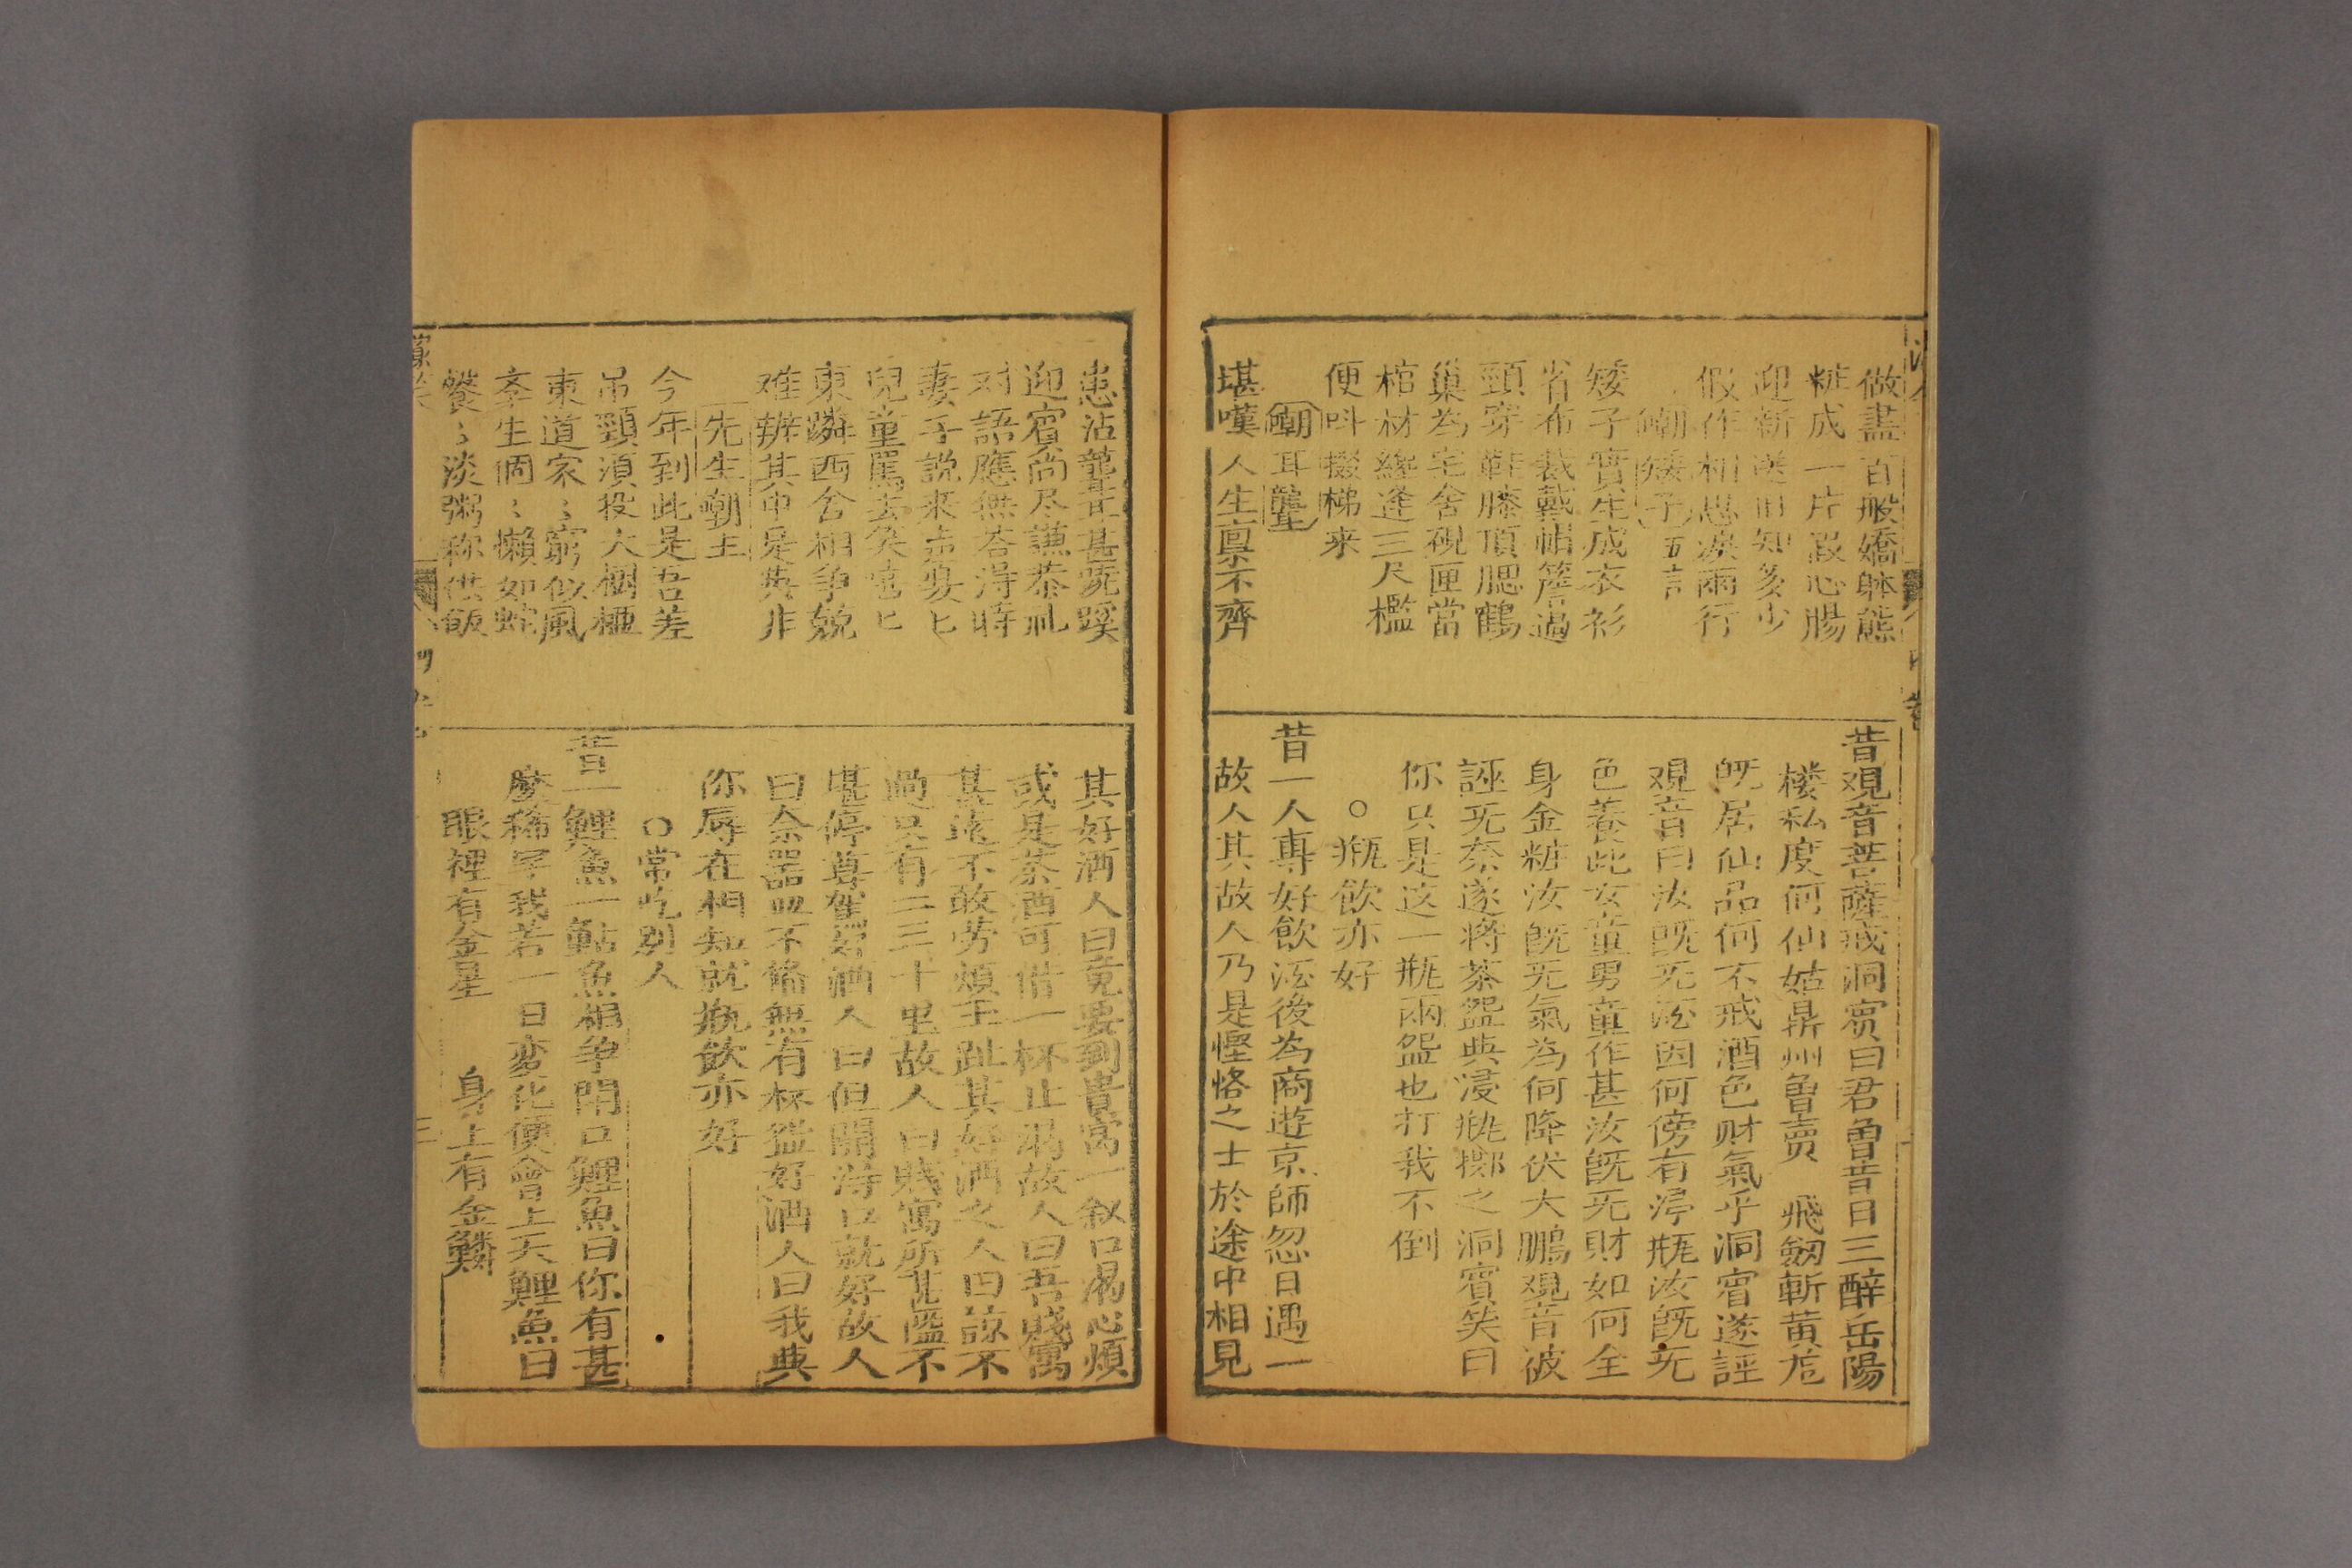 做盡百般嬌躰態
粧成一片假心腸
迎新送旧知多少
假作相思淚兩行
嘲矮子五言
矮子實生成衣衫
省布裁戴帽簷過
頸穿鞋膝頂腮鶴
巢為宅舍硯匣當
棺材纔逢三尺檻
便呌掇梯来
嘲耳聾
堪嘆人生禀不齊
昔观音菩薩戒洞賓曰君曾昔日三醉岳陽
楼私度何仙姑鼎州曾賣 飛劔斬黄龙
既居仙品何不戒酒色财氣乎洞賓遂誣
观音曰汝既无酒因何傍有浸瓶汝既无
色養此女童男童作甚汝既无財如何全
身金粧汝既无氣為何降伏大鵬观音被
誣无奈遂将茶盌与浸瓶擲之洞賓笑曰
你只是这一瓶兩盌也打我不倒
○瓶飲亦好
昔一人專好飲酒後為商遊京師忽日遇一
故人其故人乃是慳恡之士於途中相見
患沾聾耳甚蹺蹊
迎賓尚尽謙恭礼
对語應無荅淂時
妻子說来
兒童罵去笑
東隣西舍相争競
难辨其中是與非
先生嘲主
今年到此是吾差
吊頸湏投大樹椏
東道家〻窮似風
李生個〻懶如蛇
餐〻淡粥称供飯
其好酒人曰竟要到貴寓一叙口渴心煩
或是茶酒可借一杯止渴故人曰吾賤寓
甚遠不敢劳煩玉趾其好酒之人曰諒不
過只有二三十里故人曰賤寓所甚隘不
堪停尊駕好酒人曰但開淂口就好故人
曰奈器皿不俻無有杯盞好酒人曰我與
你辱在相知就瓶飲亦好
○常吃别人
昔一鯉魚一鮎魚相争閙口鯉魚曰你有甚
麼稀罕我若一日变化便會上天鯉魚曰
眼裡有金星 身上有金鱗